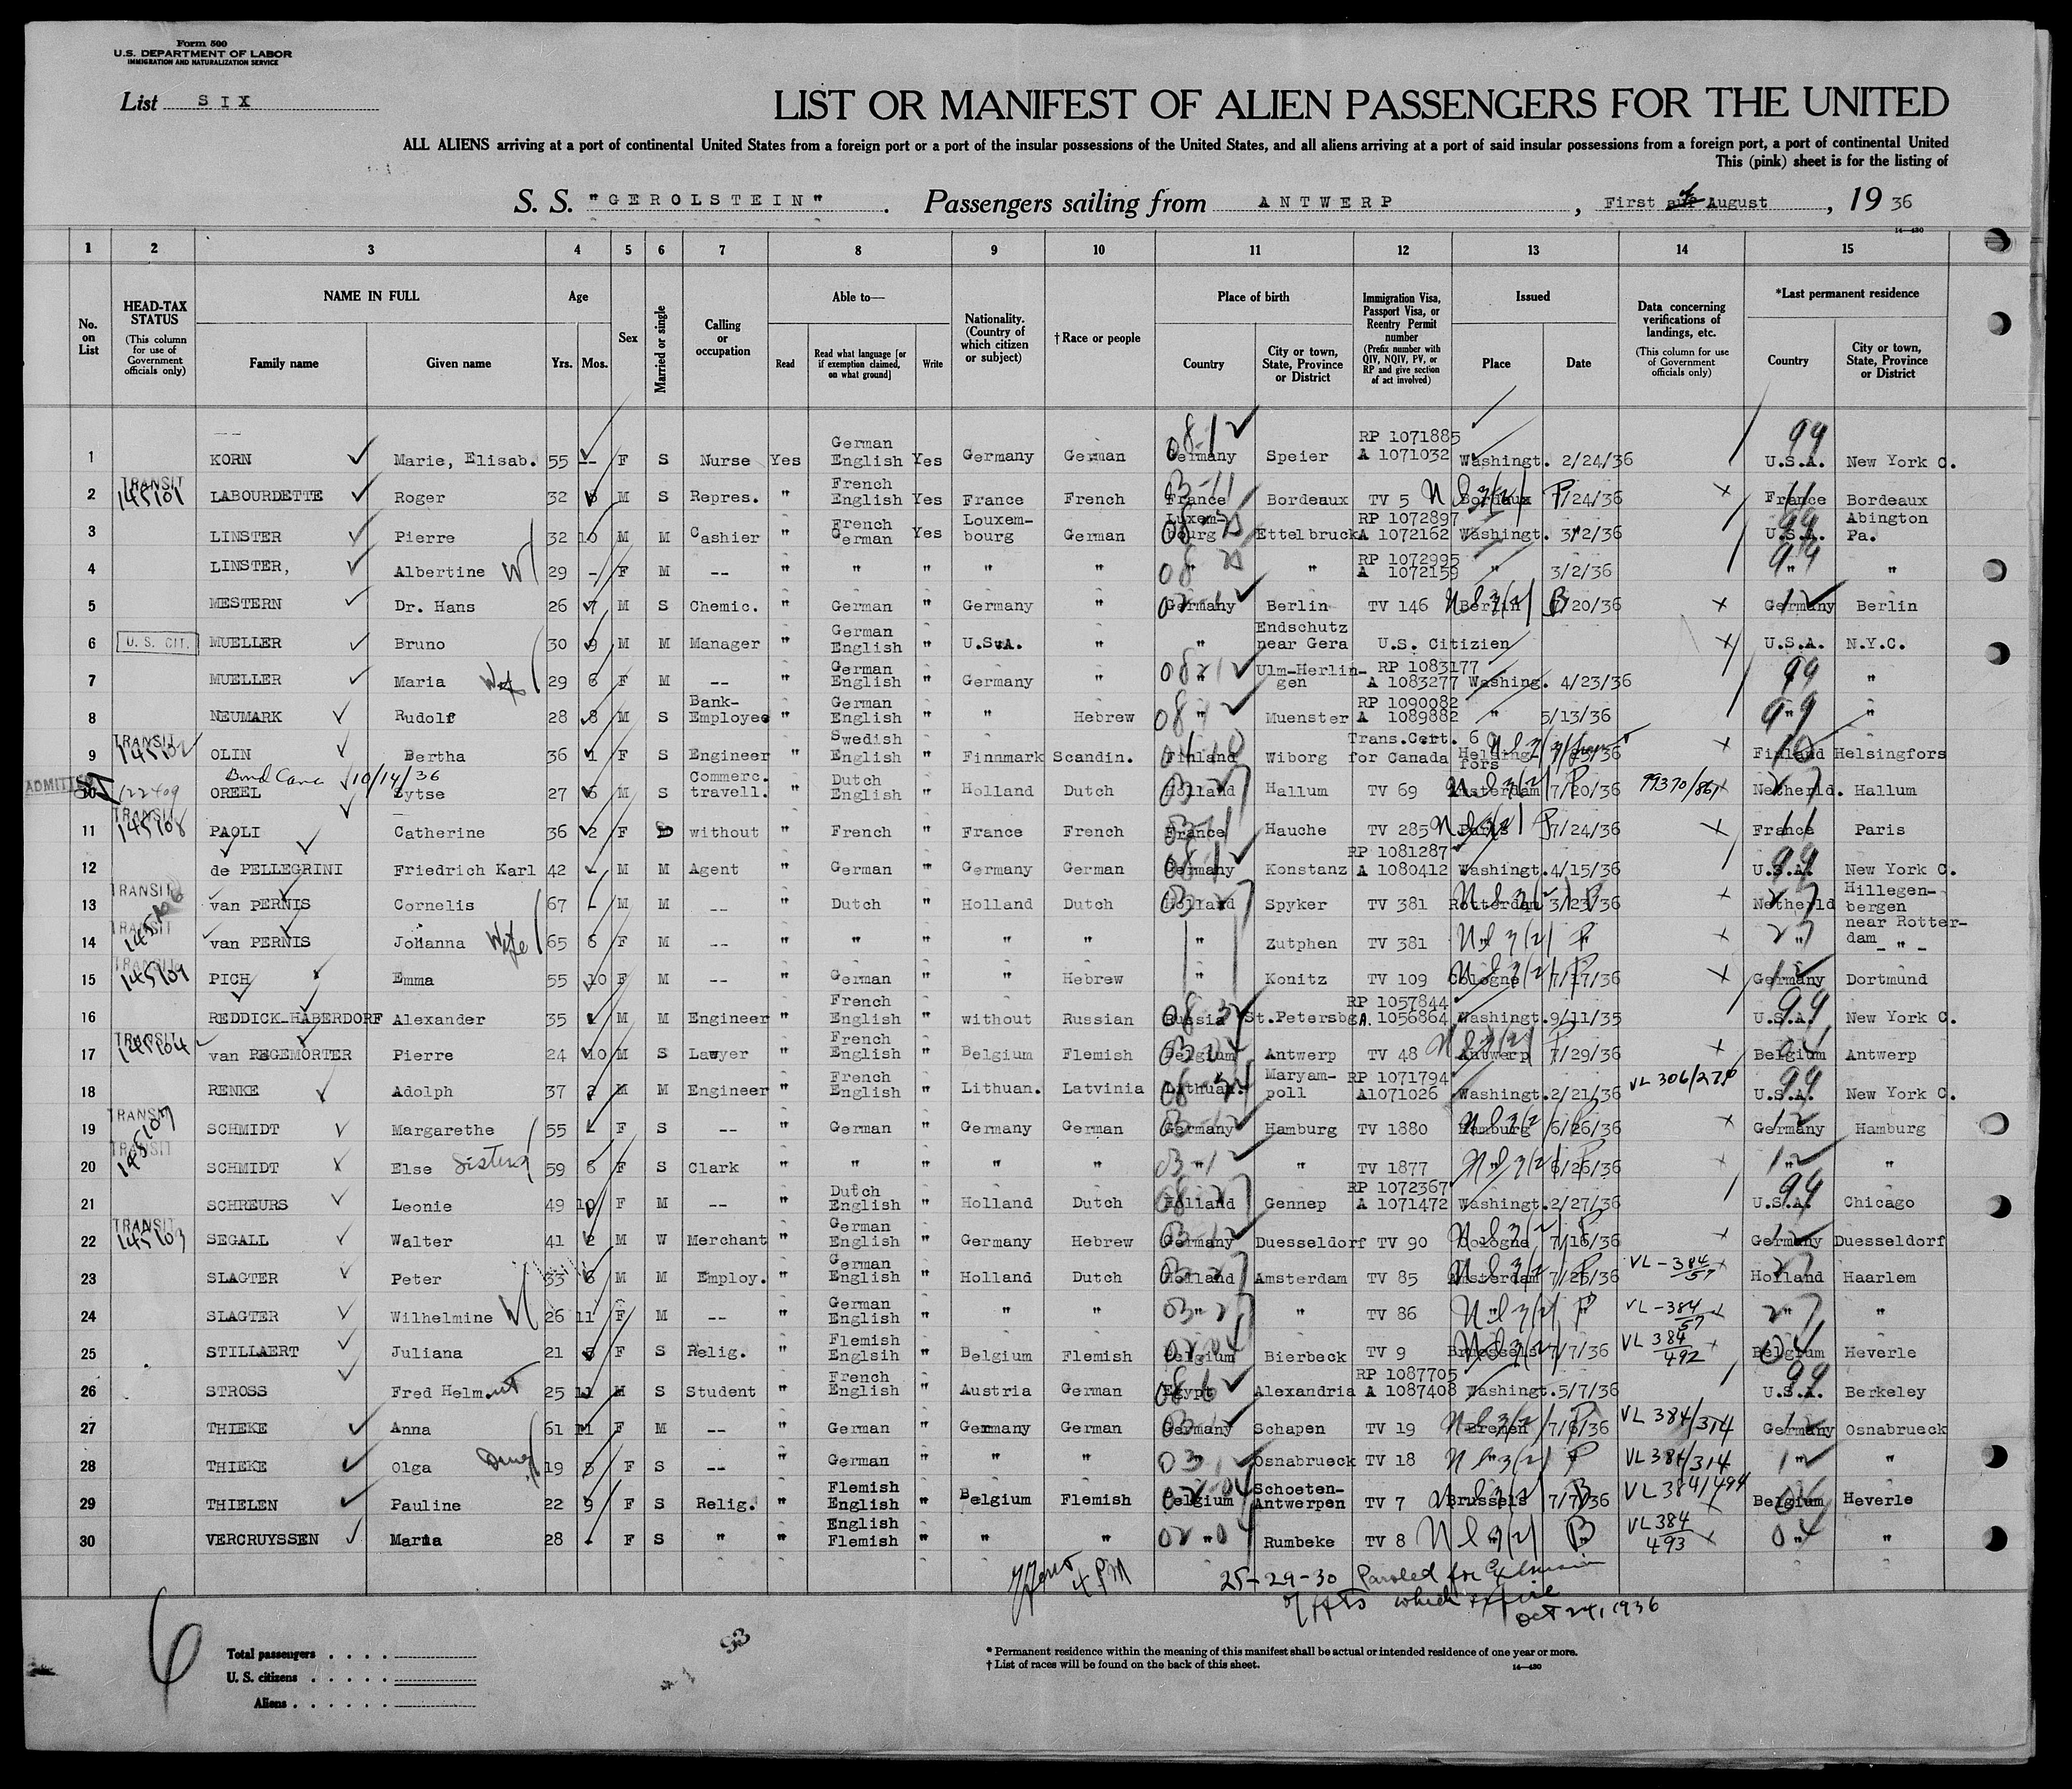 Form 500
U.S. DEPARTMENT OF LABOR
IMMIGRATION AND NATURALIZATION SERVICE
List SIX
LIST OR MANIFEST OF ALIEN PASSENGERS FOR THE UNITED
ALL ALIENS arriving at a port of continental United States from a foreign port or a port of the insular possessions of the United States, and all aliens arriving at a port of said insular possessions from a foreign port, a port of continental United
This (pink) sheet is for the listing of
S. S. "GEROLSTEIN". Passengers sailing from ANTWERP, First of August, 19 36
14—430
1 2 3 4 5 6 7 8 9 10 11 12 13 14 15
No. on List
HEAD-TAX STATUS
(This column for use of Government officials only)
NAME IN FULL
Family name Given name
Age
Yrs. Mos.
Sex
Married or single
Calling or occupation
Able to—
Read
Read what language [or if exemption claimed, on what ground]
Write
Nationality. (Country of which citizen or subject)
†Race or people
Place of birth
Country
City or town, State, Province or District
Immigration Visa, Passport Visa, or Reentry Permit number
(Prefix number with QIV, NQIV, PV, or RP and give section of act involved)
Issued
Place Date
Data concerning verifications of landings, etc.
(This column for use of Government officials only)
*Last permanent residence
Country
City or town, State, Province or District
1 KORN Marie, Elisab. 55 -- F S Nurse Yes German English Yes Germany German 08-12 Germany Speier RP 1071885 A 1071032 Washingt. 2/24/36 99 U.S.A. New York C.
2 TRANSIT 145101 LABOURDETTE Roger 32 M S Repres. " French English Yes France French 03-11 France Bordeaux TV 5 Bordeaux 7/24/36 x France Bordeaux
3 LINSTER Pierre 32 10 M M Cashier " French German Yes Louxembourg German Luxembourg Ettelbruck RP 1072897 A 1072162 Washingt. 3/2/36 99 U.S.A. Abington Pa.
4 LINSTER, Albertine W 29 - F M -- " " " " " 08 " RP 1072995 A 1072159 " 3/2/36 99 " "
5 MESTERN Dr. Hans 26 7 M S Chemic. " German " Germany " Germany Berlin TV 146 Berlin 7/20/36 x 12 Germany Berlin
6 U. S. CIT. MUELLER Bruno 30 9 M M Manager " German English " U.S.A. " " Endschutz near Gera U.S. Citizien x U.S.A. N.Y.C.
7 MUELLER Maria 29 6 F M -- " German English " Germany " 08 12 Ulm-Herlingen RP 1083177 A 1083277 Washing. 4/23/36 99 "
8 NEUMARK Rudolf 28 8 M S Bank-Employee " German English " " Hebrew 08 12 " Muenster RP 1090082 A 1089882 " 5/13/36 99 " "
9 TRANSIT OLIN Bertha 36 1 F S Engineer " Swedish English " Finnmark Scandin. Finland Wiborg Trans.Cert. 6 for Canada Helsingfors x Finland Helsingfors
Bond Canc 10/14/36
ADMITTED 10 122409 OREEL Sytse 27 6 M S Commerc. travell. " Dutch English " Holland Dutch Holland Hallum TV 69 Amsterdam 7/20/36 99370/861 Netherld. Hallum
11 TRANSIT 145108 PAOLI Catherine 36 2 F without " French " France French France Hauche TV 285 Paris 7/24/36 x France Paris
12 de PELLEGRINI Friedrich Karl 42 - M M Agent " German " Germany German 08-12 Germany Konstanz RP 1081287 A 1080412 Washingt. 4/15/36 99 U.S.A. New York C.
13 TRANSIT van PERNIS Cornelis 67 - M M -- " Dutch " Holland Dutch Holland Spyker TV 381 Rotterdam 3/23/36 x 27 Netherld Hillegenbergen near Rotterdam
14 TRANSIT 145106 van PERNIS Johanna Wife 65 6 F M -- " " " " " " Zutphen TV 381 " " x 27 " - " -
15 TRANSIT 145109 PICH Emma 55 10 F M -- " German " " Hebrew " Konitz TV 109 Cologne 7/17/36 x 12 Germany Dortmund
16 REDDICK-HABERDORF Alexander 35 M M Engineer " French English " without Russian Russia St.Petersbg. RP 1057844 A. 1056864 Washingt. 9/11/35 99 U.S.A. New York C.
17 TRANSIT 145104 van REGEMORTER Pierre 24 10 M S Lawyer " French English " Belgium Flemish Belgium Antwerp TV 48 Antwerp 7/29/36 x Belgium Antwerp
18 RENKE Adolph 37 2 M M Engineer " French English " Lithuan. Latvinia Lithuan. Maryampoll RP 1071794 A1071026 Washingt. 2/21/36 99 U.S.A. New York C.
19 TRANSIT SCHMIDT Margarethe 55 - F S -- " German " Germany German Germany Hamburg TV 1880 Hamburg 6/26/36 x 12 Germany Hamburg
20 TRANSIT 145107 SCHMIDT Else Sisters 59 6 F S Clark " " " " " 03-12 " TV 1877 " 6/26/36 x 12 " "
21 SCHREURS Leonie 49 10 F M -- " Dutch English " Holland Dutch Holland Gennep RP 1072367 A 1071472 Washingt. 2/27/36 99 U.S.A. Chicago
22 TRANSIT 145103 SEGALL Walter 41 2 M W Merchant " German English " Germany Hebrew 03-12 Germany Duesseldorf TV 90 Cologne 7/16/36 x 12 Germany Duesseldorf
23 SLAGTER Peter 33 6 M M Employ. " German English " Holland Dutch Holland Amsterdam TV 85 Amsterdam 7/25/36 VL-384/57 27 Holland Haarlem
24 SLAGTER Wilhelmine W 26 11 F M -- " German English " " " 03-27 " TV 86 " " VL-384/57 27 " "
25 STILLAERT Juliana 21 F S Relig. " Flemish Englsih " Belgium Flemish Belgium Bierbeck TV 9 Bruessels 7/7/36 VL 384/492 04 Belgium Heverle
26 STROSS Fred Helmut 25 11 M S Student " French English " Austria German Egypt Alexandria RP 1087705 A 1087408 Washingt. 5/7/36 99 U.S.A. Berkeley
27 THIEKE Anna 61 11 F M -- " German " Germany German Germany Schapen TV 19 Bremen 7/6/36 VL 384/314 12 Germany Osnabrueck
28 THIEKE Olga 19 5 F S -- " German " " " Osnabrueck TV 18 " " VL 384/314 12 " "
29 THIELEN Pauline 22 9 F S Relig. " Flemish English " Belgium Flemish Belgium Schoeten-Antwerpen TV 7 Brussels 7/7/36 VL 384/494 x 04 Belgium Heverle
30 VERCRUYSSEN Maria 28 - F S " " English Flemish " " " 02 04 " Rumbeke TV 8 " " VL 384/493 x 04 " "
4 PM
25-29-30 Paroled for Extension
which expire
Oct 24, 1936
6
Total passengers
U. S. citizens
Aliens
93
* Permanent residence within the meaning of this manifest shall be actual or intended residence of one year or more.
† List of races will be found on the back of this sheet.
14—430